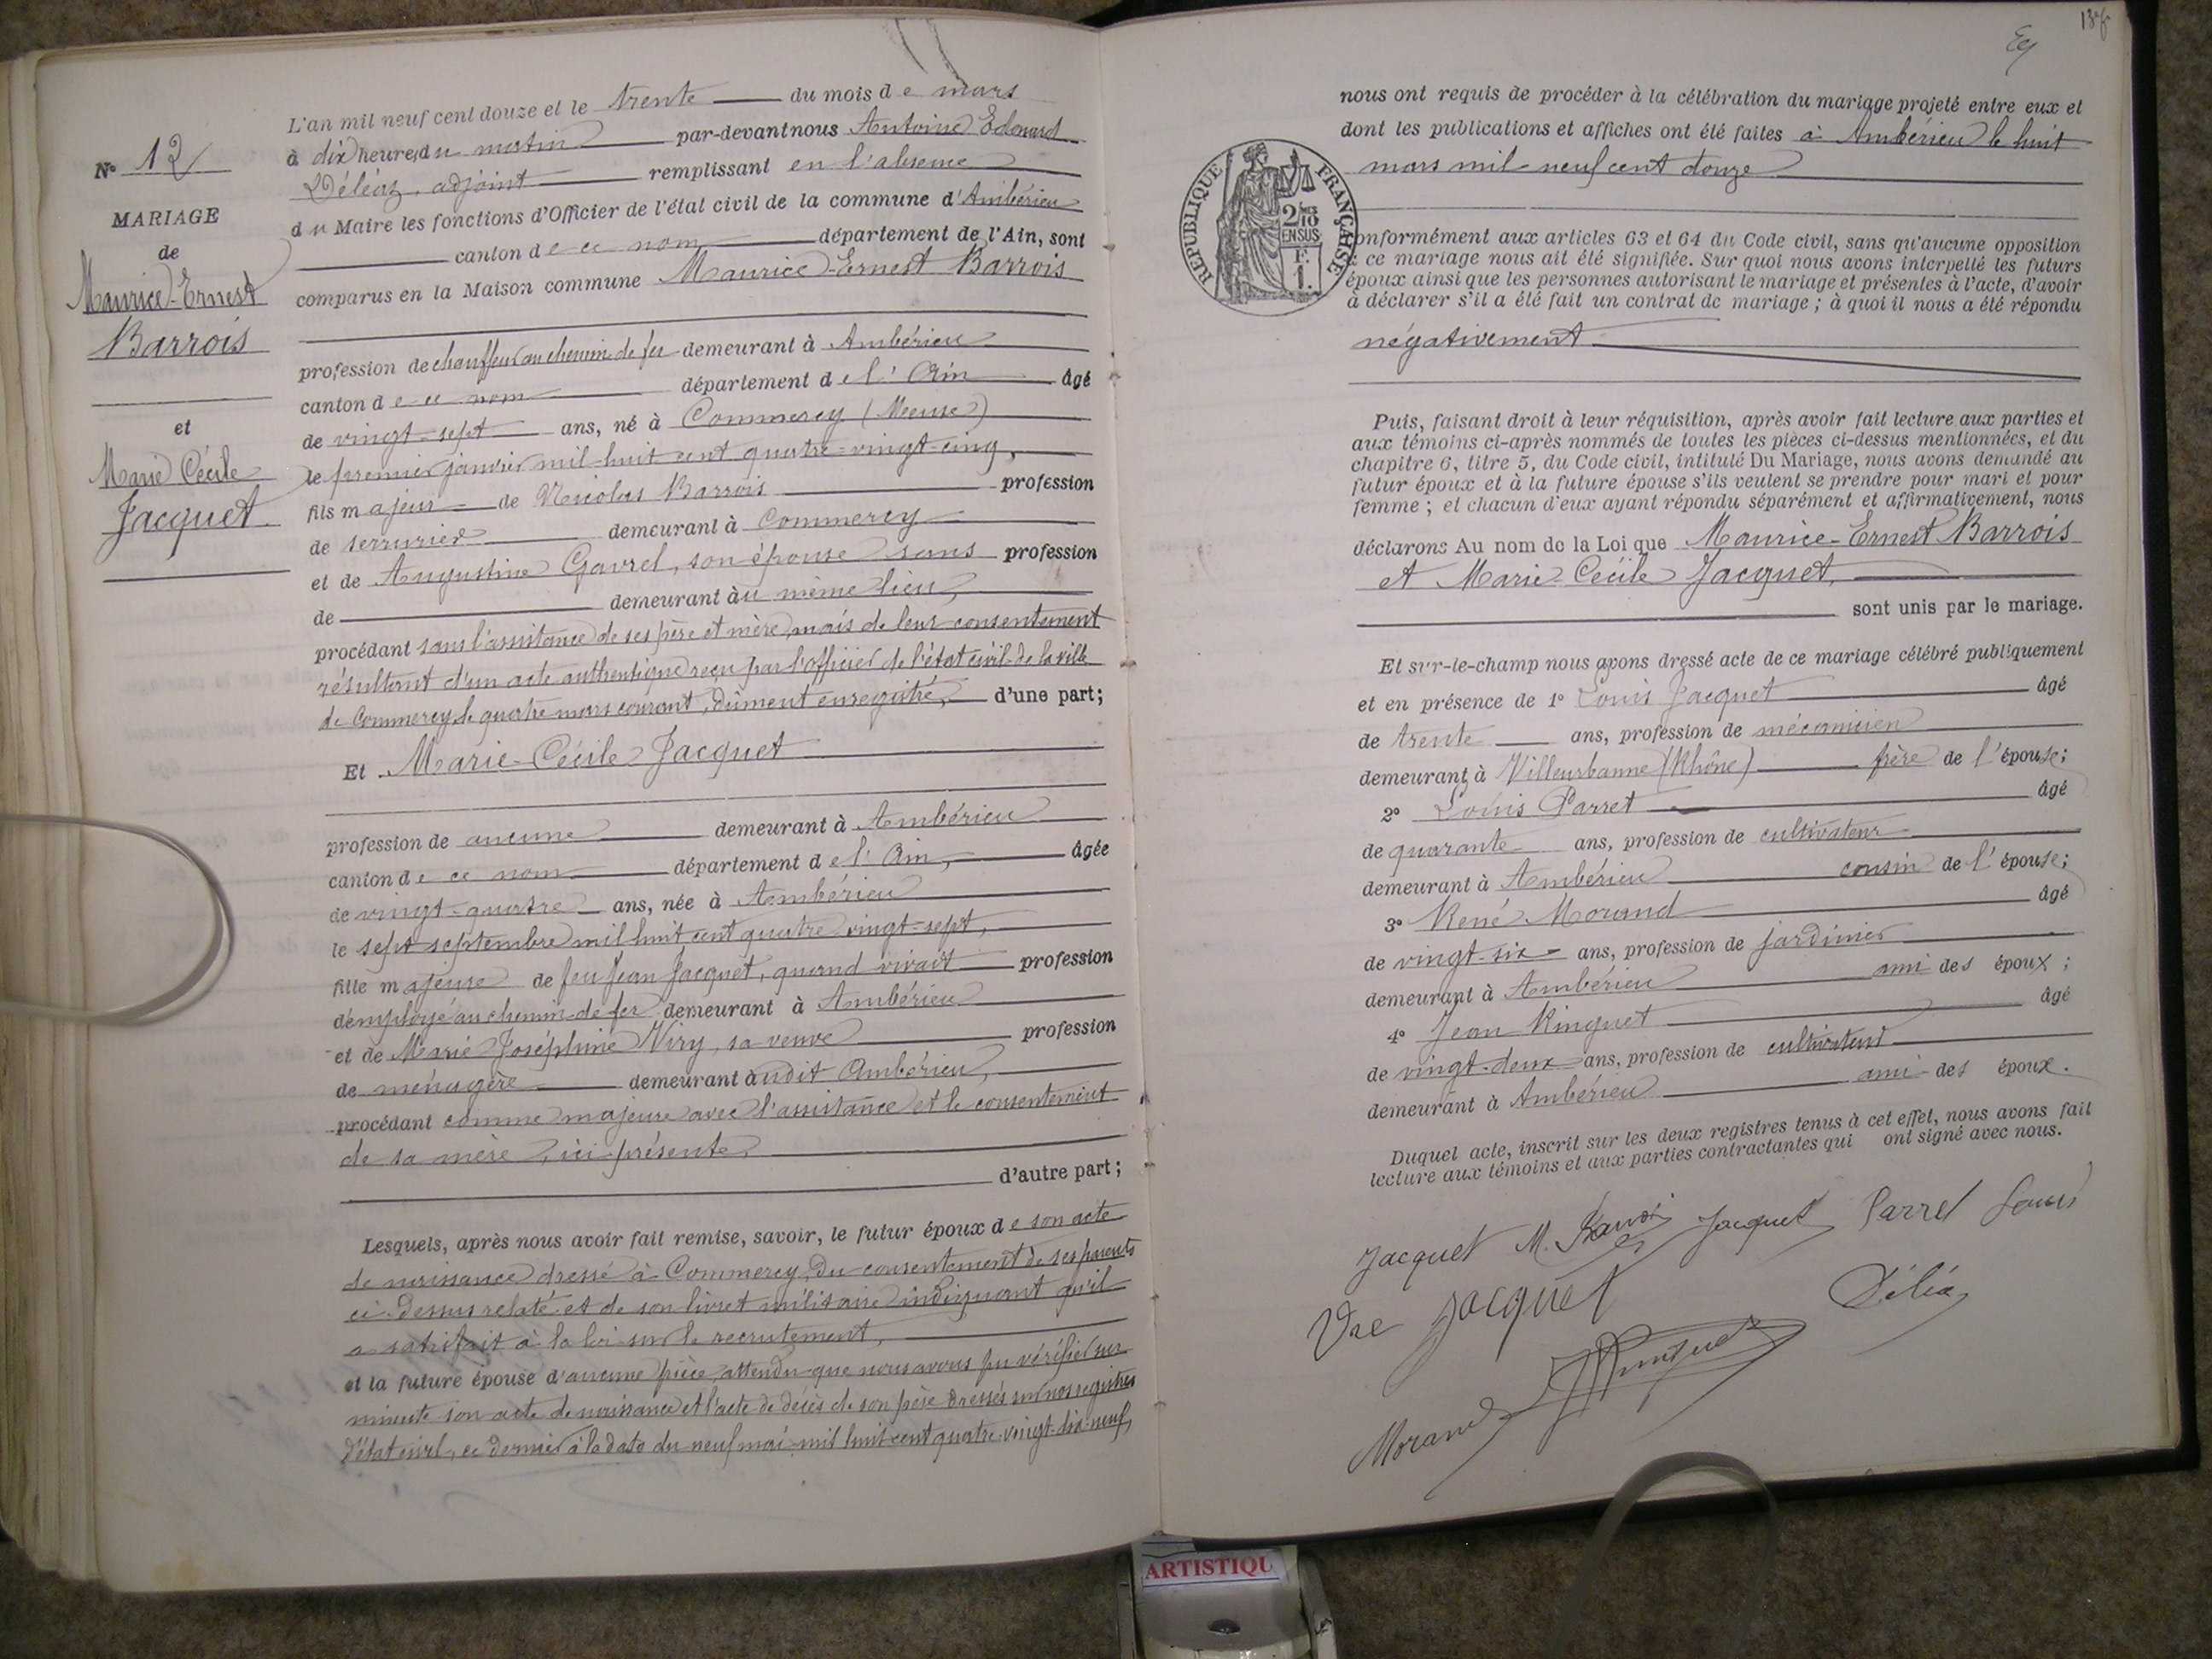 N° 12
MARIAGE
de
Maurice-Ernest
Barrois
et
Marie Cécile
Jacquet
L'an mil neuf cent douze et le trente du mois de mars
à dix heures du matin par-devant nous Antoine Edouard
Déléaz, adjoint remplissant en l'absence
du Maire les fonctions d'Officier de l'état civil de la commune d'Ambérieu
canton de ce nom département de l'Ain, sont
comparus en la Maison commune Maurice-Ernest Barrois
profession de chauffeur au chemin de fer demeurant à Ambérieu
canton de ce nom département de l'Ain âgé
de vingt-sept ans, né à Commercy (Meuse)
le premier janvier mil-huit cent quatre-vingt-cinq,
fils majeur de Nicolas Barrois profession
de serrurier demeurant à Commercy
et de Augustine Gavrel, son épouse sans profession
de demeurant au même lieu,
procédant sans l'assistance de ses père et mère, mais de leur consentement
résultant d'un acte authentique reçu par l'officier de l'état civil de la ville
de Commercy, le quatre mars courant, dûment enregistré, d'une part;
Et Marie-Cécile Jacquet
profession de aucune demeurant à Ambérieu
canton de ce nom département de l'Ain, âgée
de vingt-quatre ans, née à Ambérieu
le sept septembre mil huit cent quatre vingt-sept,
fille majeure de feu Jean Jacquet, quand vivait profession
d'employé au chemin de fer demeurant à Ambérieu
et de Marie Joséphine Viry, sa veuve profession
de ménagère demeurant audit Ambérieu,
procédant comme majeure avec l'assistance et le consentement
de sa mère, ici présente
d'autre part;
Lesquels, après nous avoir fait remise, savoir, le futur époux de son acte
de naissance dressé à Commercy, du consentement de ses parents
ci-dessus relaté et de son livret militaire indiquant qu'il
a satisfait à la loi sur le recrutement,
et la future épouse d'aucune pièce, attendu que nous avons pu vérifier sur
minute son acte de naissance et l'acte de décès de son père dressés sur nos registres
d'état civil, ce dernier à la date du neuf mai mil huit cent quatre-vingt-dix-neuf,
REPUBLIQUE FRANÇAISE
2/10
EN SUS
F.
1.
nous ont requis de procéder à la célébration du mariage projeté entre eux et
dont les publications et affiches ont été faites à Ambérieu le huit
mars mil-neuf cent douze
onformément aux articles 63 et 64 du Code civil, sans qu'aucune opposition
ce mariage nous ait été signifiée. Sur quoi nous avons interpellé les futurs
époux ainsi que les personnes autorisant le mariage et présentes à l'acte, d'avoir
à déclarer s'il a été fait un contrat de mariage ; à quoi il nous a été répondu
négativement
Puis, faisant droit à leur réquisition, après avoir fait lecture aux parties et
aux témoins ci-après nommés de toutes les pièces ci-dessus mentionnées, et du
chapitre 6, titre 5, du Code civil, intitulé Du Mariage, nous avons demandé au
futur époux et à la future épouse s'ils veulent se prendre pour mari et pour
femme ; et chacun d'eux ayant répondu séparément et affirmativement, nous
déclarons Au nom de la Loi que Maurice-Ernest Barrois
et Marie-Cécile Jacquet,
sont unis par le mariage.
Et sur-le-champ nous avons dressé acte de ce mariage célébré publiquement
et en présence de 1° Louis Jacquet âgé
de trente ans, profession de mécanicien
demeurant à Villeurbanne (Rhône) frère de l'épouse;
2° Louis Parret âgé
de quarante ans, profession de cultivateur
demeurant à Ambérieu cousin de l'épouse;
3° René Morand âgé
de vingt-six ans, profession de jardinier
demeurant à Ambérieu ami des époux ;
4° Jean Ringuet âgé
de vingt-deux ans, profession de cultivateur
demeurant à Ambérieu ami des époux.
Duquel acte, inscrit sur les deux registres tenus à cet effet, nous avons fait
lecture aux témoins et aux parties contractantes qui ont signé avec nous.
Jacquet M. Barrois Jacquet Parret Louis
Vve Jacquet Déléaz
Morand JRinguet
ARTISTIQU